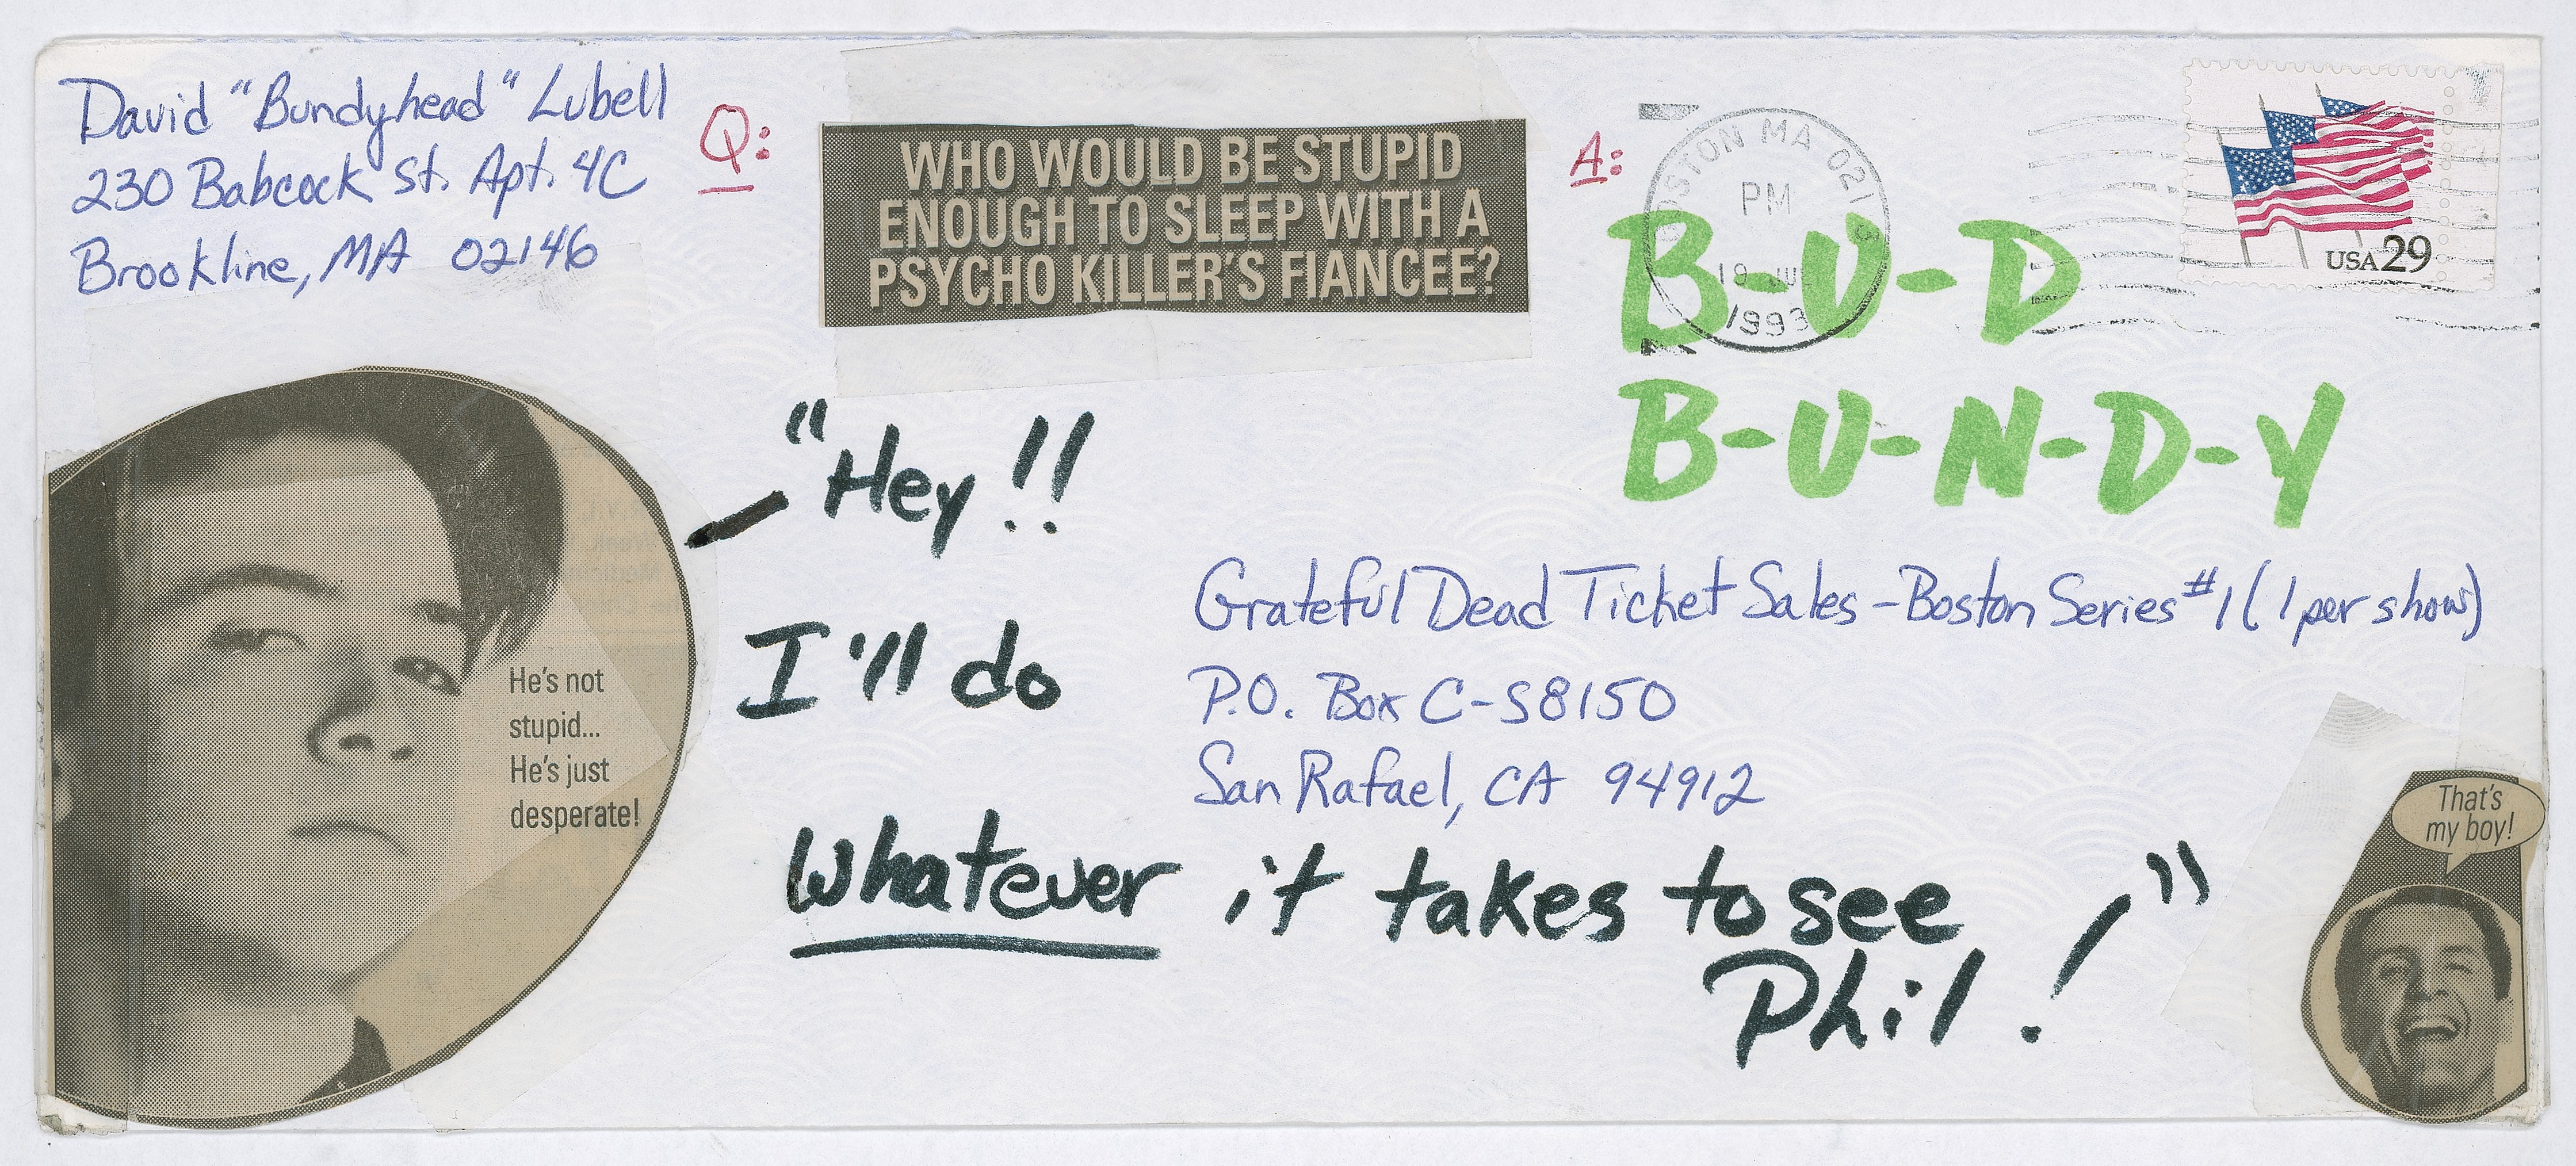 David "Bundyhead" Lubell
230 Babcock St. Apt. 4C
Brookline, MA 02146
Q:
WHO WOULD BE STUPID
ENOUGH TO SLEEP WITH A
PSYCHO KILLER'S FIANCEE?
A:
B-U-D
B-U-N-D-Y
BOSTON MA 021
PM
19 JUL
1993
USA 29
"Hey!!
I'll do
whatever it takes to see
Phil!"
He's not
stupid...
He's just
desperate!
Grateful Dead Ticket Sales - Boston Series #1 (1 per show)
P.O. Box C-S8150
San Rafael, CA 94912
That's
my boy!